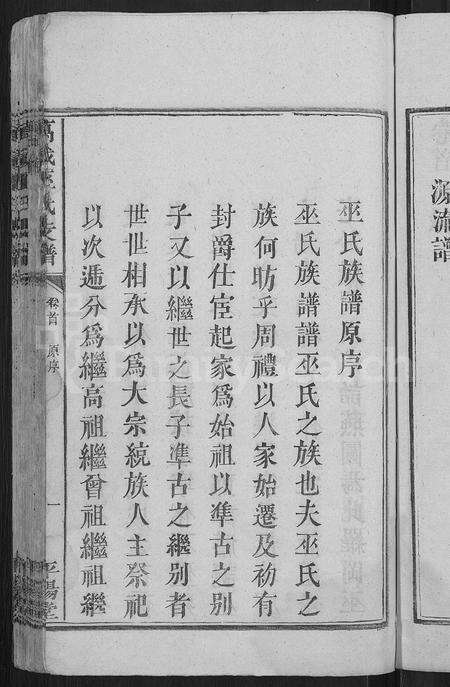 源流譜
巫氏族譜原序
巫氏族譜譜巫氏之族也夫巫氏之
族何昉乎周禮以人家始遷及初有
封爵仕宦起家爲始祖以準古之别
子又以繼世之長子準古之繼别者
世世相承以爲大宗統族人主祭祀
以次遞分爲繼高祖繼曾祖繼祖繼
巫氏支譜
卷首 原序
一
平陽堂